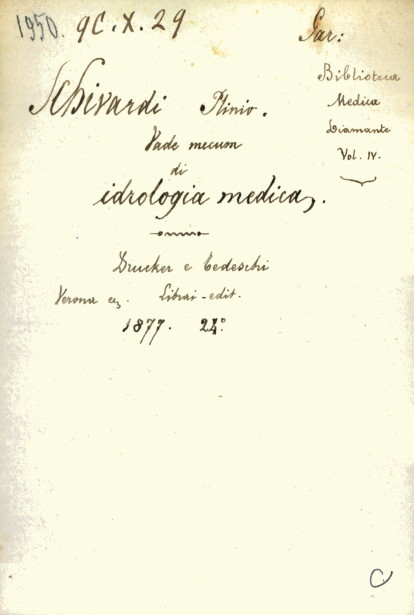 1950. 9C.X.29
Gar:
Schivardi Plinio.
Biblioteca
Medica
Diamante
Vol. IV.
Vade mecum
di
idrologia medica.
Drucker e Tedeschi
Verona Librai-edit.
1877. 24°
C